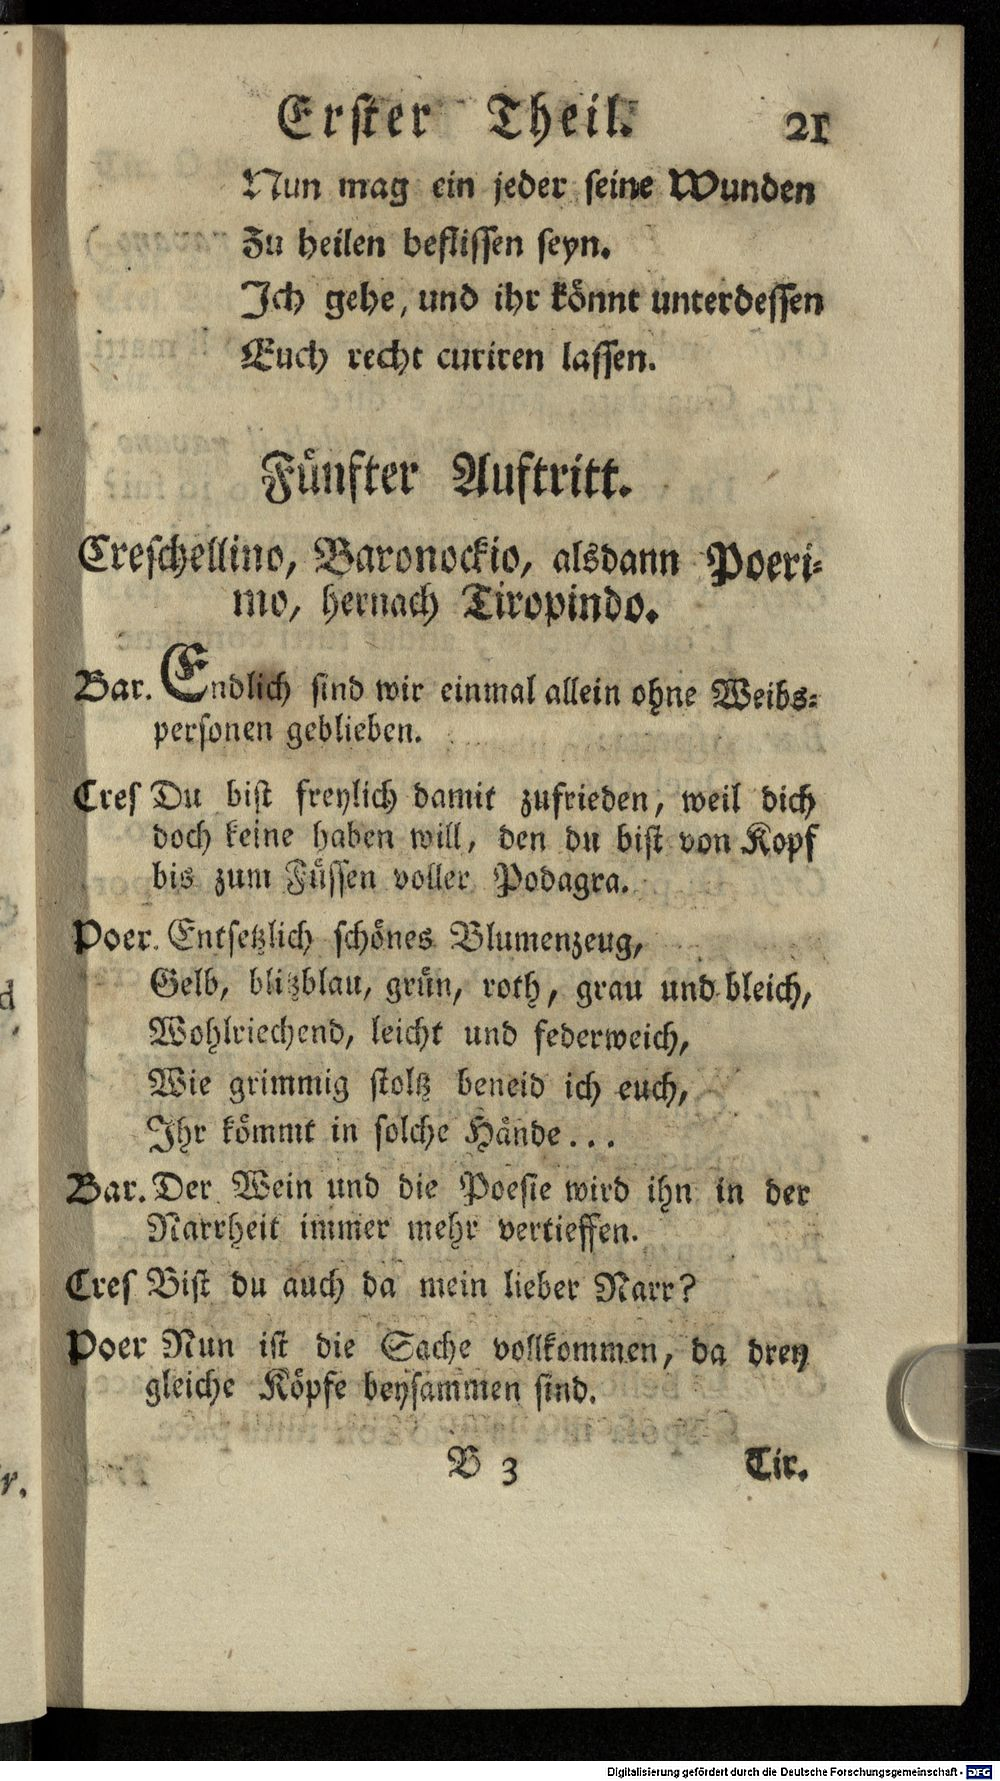 Erster Theil. 21
Nun mag ein jeder seine Wunden
Zu heilen beflissen seyn.
Ich gehe, und ihr könnt unterdessen
Euch recht curiren lassen.
Fünfter Auftritt.
Creschellino, Baronockio, alsdann Poeri-
mo, hernach Tiropindo.
Bar. Endlich sind wir einmal allein ohne Weibs-
personen geblieben.
Cres Du bist freylich damit zufrieden, weil dich
doch keine haben will, den du bist von Kopf
bis zum Füssen voller Podagra.
Poer. Entsetzlich schönes Blumenzeug,
Gelb, blitzblau, grün, roth, grau und bleich,
Wohlriechend, leicht und federweich,
Wie grimmig stoltz beneid ich euch,
Ihr kömmt in solche Hände...
Bar. Der Wein und die Poesie wird ihn in der
Narrheit immer mehr vertieffen.
Cres Bist du auch da mein lieber Narr?
Poer Nun ist die Sache vollkommen, da drey
gleiche Köpfe beysammen sind.
B 3 Tir.
Digitalisierung gefördert durch die Deutsche Forschungsgemeinschaft - DFG